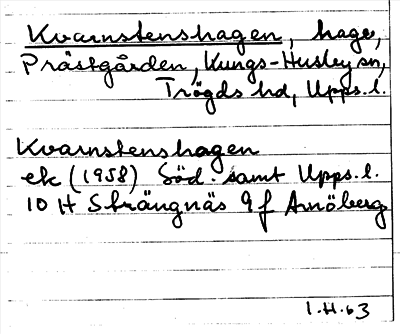 Kvarnstenshagen, hage,
Prästgården, Kungs-Husby sn,
Trögds hd, Upps. l.
Kvarnstenshagen
ek (1958) Söd. samt Upps. l.
10 H Strängnäs 9 f Arnöberg
I.H.63